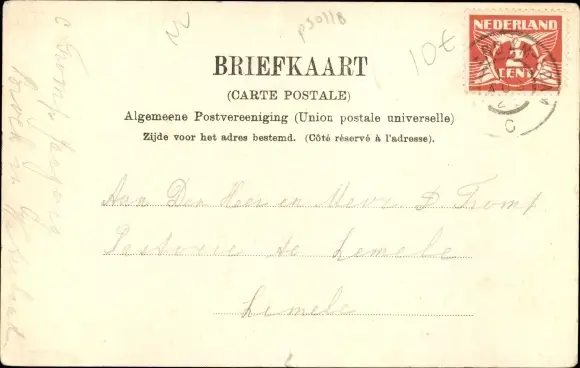 p30118
10€
NEDERLAND
2
CENT
BRIEFKAART
(CARTE POSTALE)
Algemeene Postvereeniging (Union postale universelle)
Zijde voor het adres bestemd. (Côté réservé à l'adresse).
Aan Den Heer en Mevr. D Tromp
Pastorie te Lemele
Lemele
Tromp